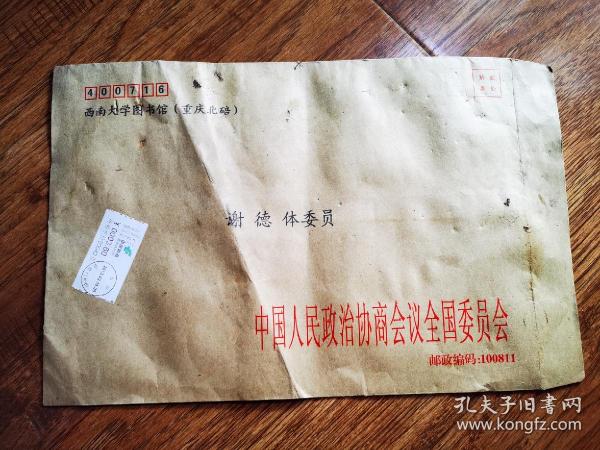 400716
贴邮
票处
西南大学图书馆(重庆北碚)
谢德体委员
中国邮政
¥0002.60
中国人民政治协商会议全国委员会
邮政编码:100811
孔夫子旧书网
www.kongfz.com